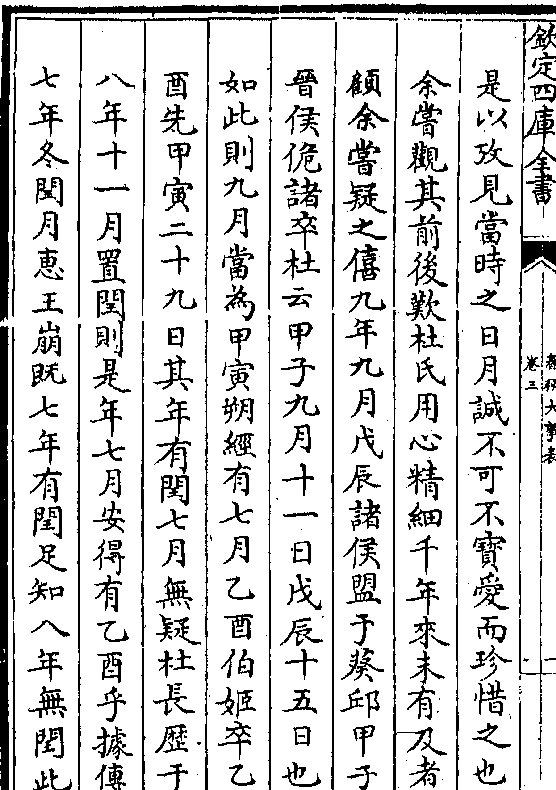 欽定四庫全書
春秋大事表
卷三
是以攷見當時之日月誠不可不寶愛而珍惜之也
余嘗觀其前後歎杜氏用心精細千年來未有及者
顧余嘗疑之僖九年九月戊辰諸侯盟于葵邱甲子
晉侯佹諸卒杜云甲子九月十一日戊辰十五日也
如此則九月當為甲寅朔經有七月乙酉伯姬卒乙
酉先甲寅二十九日其年有閏七月無疑杜長歴于
八年十一月置閏則是年七月安得有乙酉乎據傳
七年冬閏月惠王崩既七年有閏足知八年無閏此